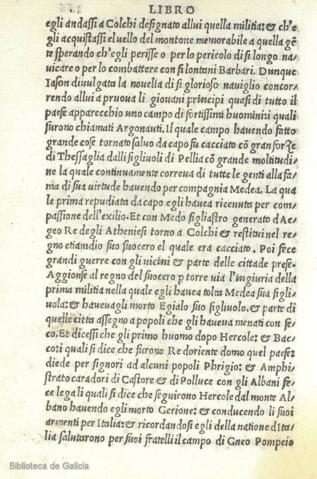 LIBRO
egli andassi a Colchi designato allui quella militia: & ch'e
gli acquistassi el uello del montone memorabile a quella gẽ
te sperando ch'egli perisse o per lo pericolo di si longo na-
uicare o per lo combattere con si lontani Barbari. Dunque
Iason diuulgata la nouella di si glorioso nauiglio concor-
rendo allui a pruoua li giouani principi quasi di tutto il
paese apparecchio uno campo di fortissimi huomini quali
furono chiamati Argonauti. Il quale campo hauendo fatto
grande cose tornato saluo da capo fu cacciato cõ gran forze
di Thessaglia dalli figliuoli di Pellia cõ grande moltitudi-
ne la quale continuamente correua di tutte le genti alla fa-
ma di sua uirtude hauendo per compagnia Medea. La qua
le prima repudiata da capo egli hauea riceuuta per com-
passione dell'exilio. Et con Medo figliastro generato d'Ae-
geo Re degli Atheniesi torno a Colchi & restitui nel re
gno etiandio suo suocero el quale era cacciato. Poi fece
grandi guerre con gli uicini & parte delle cittade prese
Aggionse al regno del suocero p torre uia l'ingiuria della
prima militia nella quale egli hauea tolta Medea sua figli-
uola: & haueuagli morto Egialo suo figliuolo. & parte di
quelle citta assegno a popoli che gli haueua menati con se-
co. Et dicessi che gli primo huomo dopo Hercole: & Bac-
co: i quali si dice che furono Re doriente domo quel paese:
diede per signori ad alcuni popoli Phrigio: & Amphi-
strato caradori di Castore & di Polluce con gli Albani fe-
ce lega li quali si dice che seguirono Hercole dal monte Al-
bano hauendo egli morto Gerione: & conducendo li suoi
armenti per Italia: & ricordandosi egli della natione di Ita-
lia salutarono per suoi fratelli il campo di Gneo Pompeio
Biblioteca de Galicia